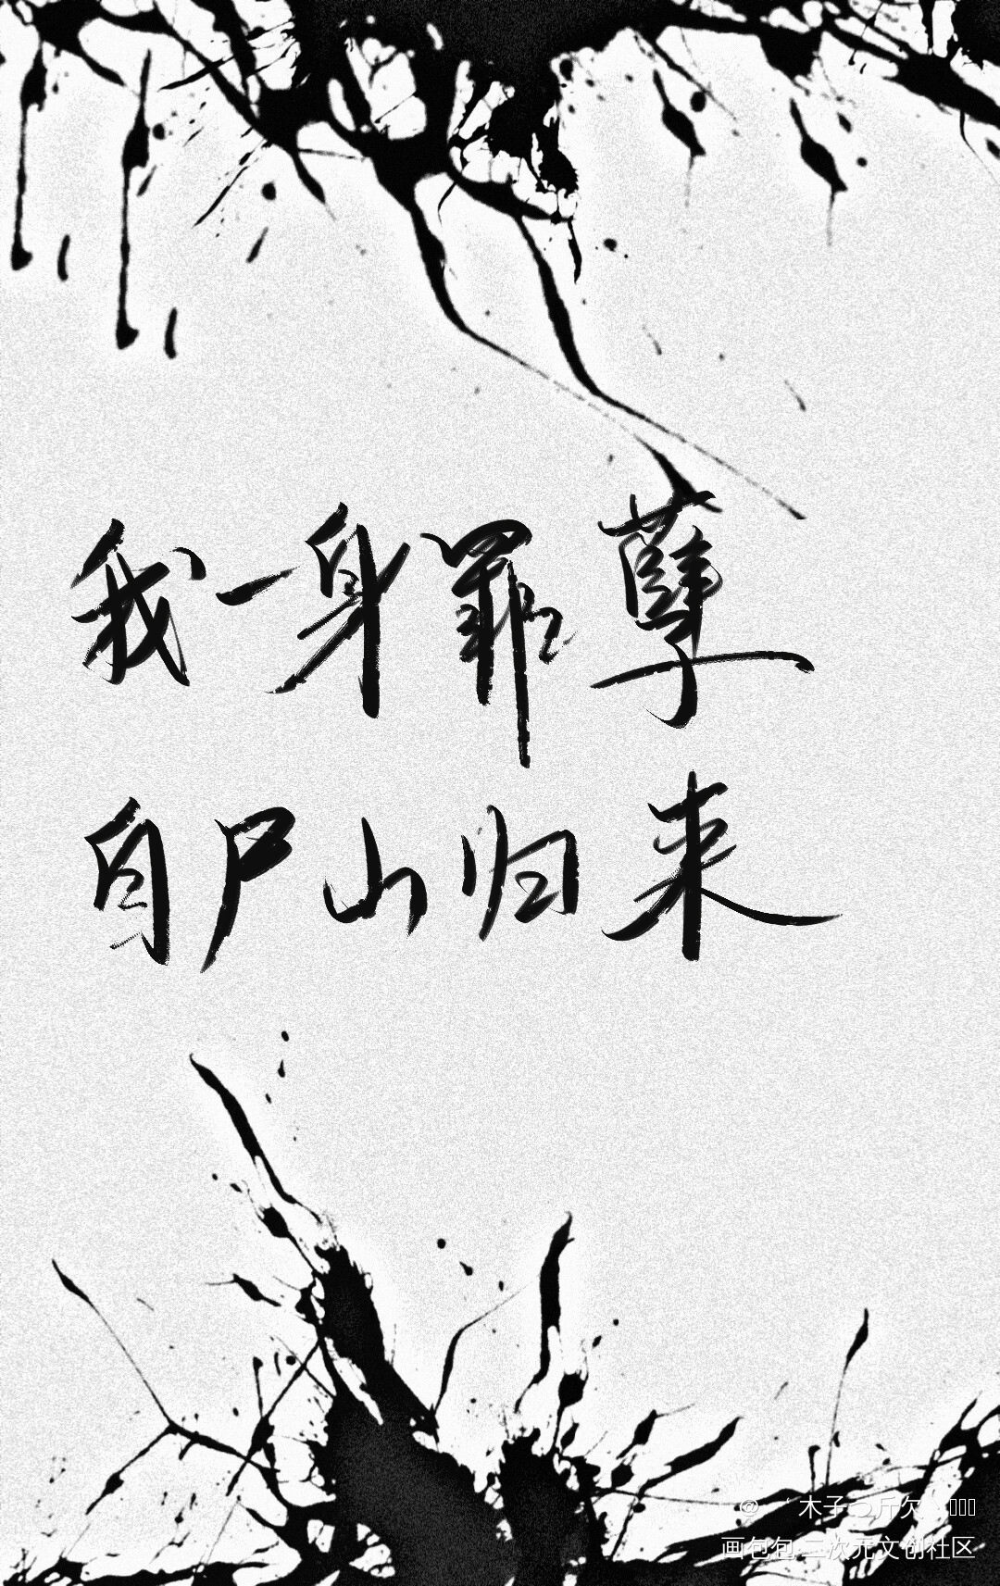 我一身罪孽
自尸山归来
木子
画包包 二次元文创社区